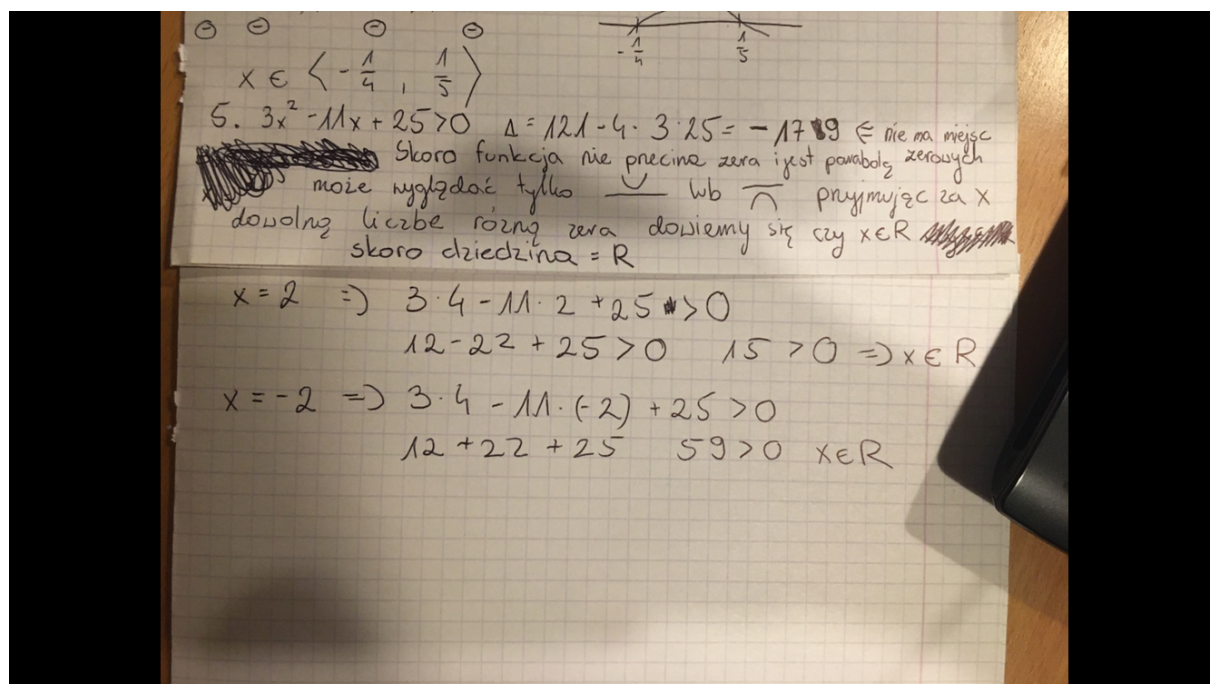 ⊖ ⊖ ⊖ ⊖
-1/4 1/5
x ∈ ⟨-1/4, 1/5⟩
5. 3x² -11x + 25>0 Δ = 121 - 4 · 3 · 25 = -179 ∈ nie ma miejsc zerowych
Skoro funkcja nie precina zera i jest parabolą
może wyglądać tylko lub pryjmując za x
dowolną liczbe rózną zera dowiemy się czy x∈R
skoro dziedzina = R
x = 2 => 3·4 - 11·2 + 25 > 0
12 - 22 + 25 > 0 15 > 0 => x ∈ R
x = -2 => 3·4 - 11·(-2) + 25 > 0
12 + 22 + 25 59 > 0 x∈R